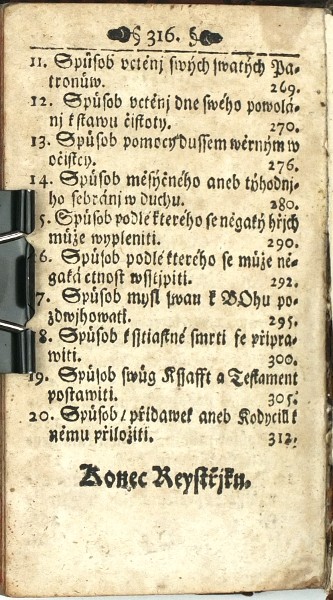 § 316. §
11. Spůsob vctěnj swých swatých Pa-
tronůw. 269.
12. Spůsob vctěnj dne swého powolá-
nj k stawu čistoty. 270.
13. Spůsob pomocy dussem wěrným w
očistcy. 276.
14. Spůsob měsýčného aneb týhodnj-
ho sebránj w duchu. 280.
5. Spůsob podlé kterého se něgaký hřjch
může wypleniti. 290.
6. Spůsob podlé kterého se může ně-
gaká ctnost wsstjpiti. 292.
7. Spůsob mysl swau k BOhu po-
zdwjhowati. 295.
8. Spůsob k sstiastné smrti se připra-
witi. 300.
19. Spůsob swůg Kssafft a Testament
postawiti. 305.
20. Spůsob / přidawek aneb Kodycill k
němu přiložiti. 312.
Konec Reystřjku.